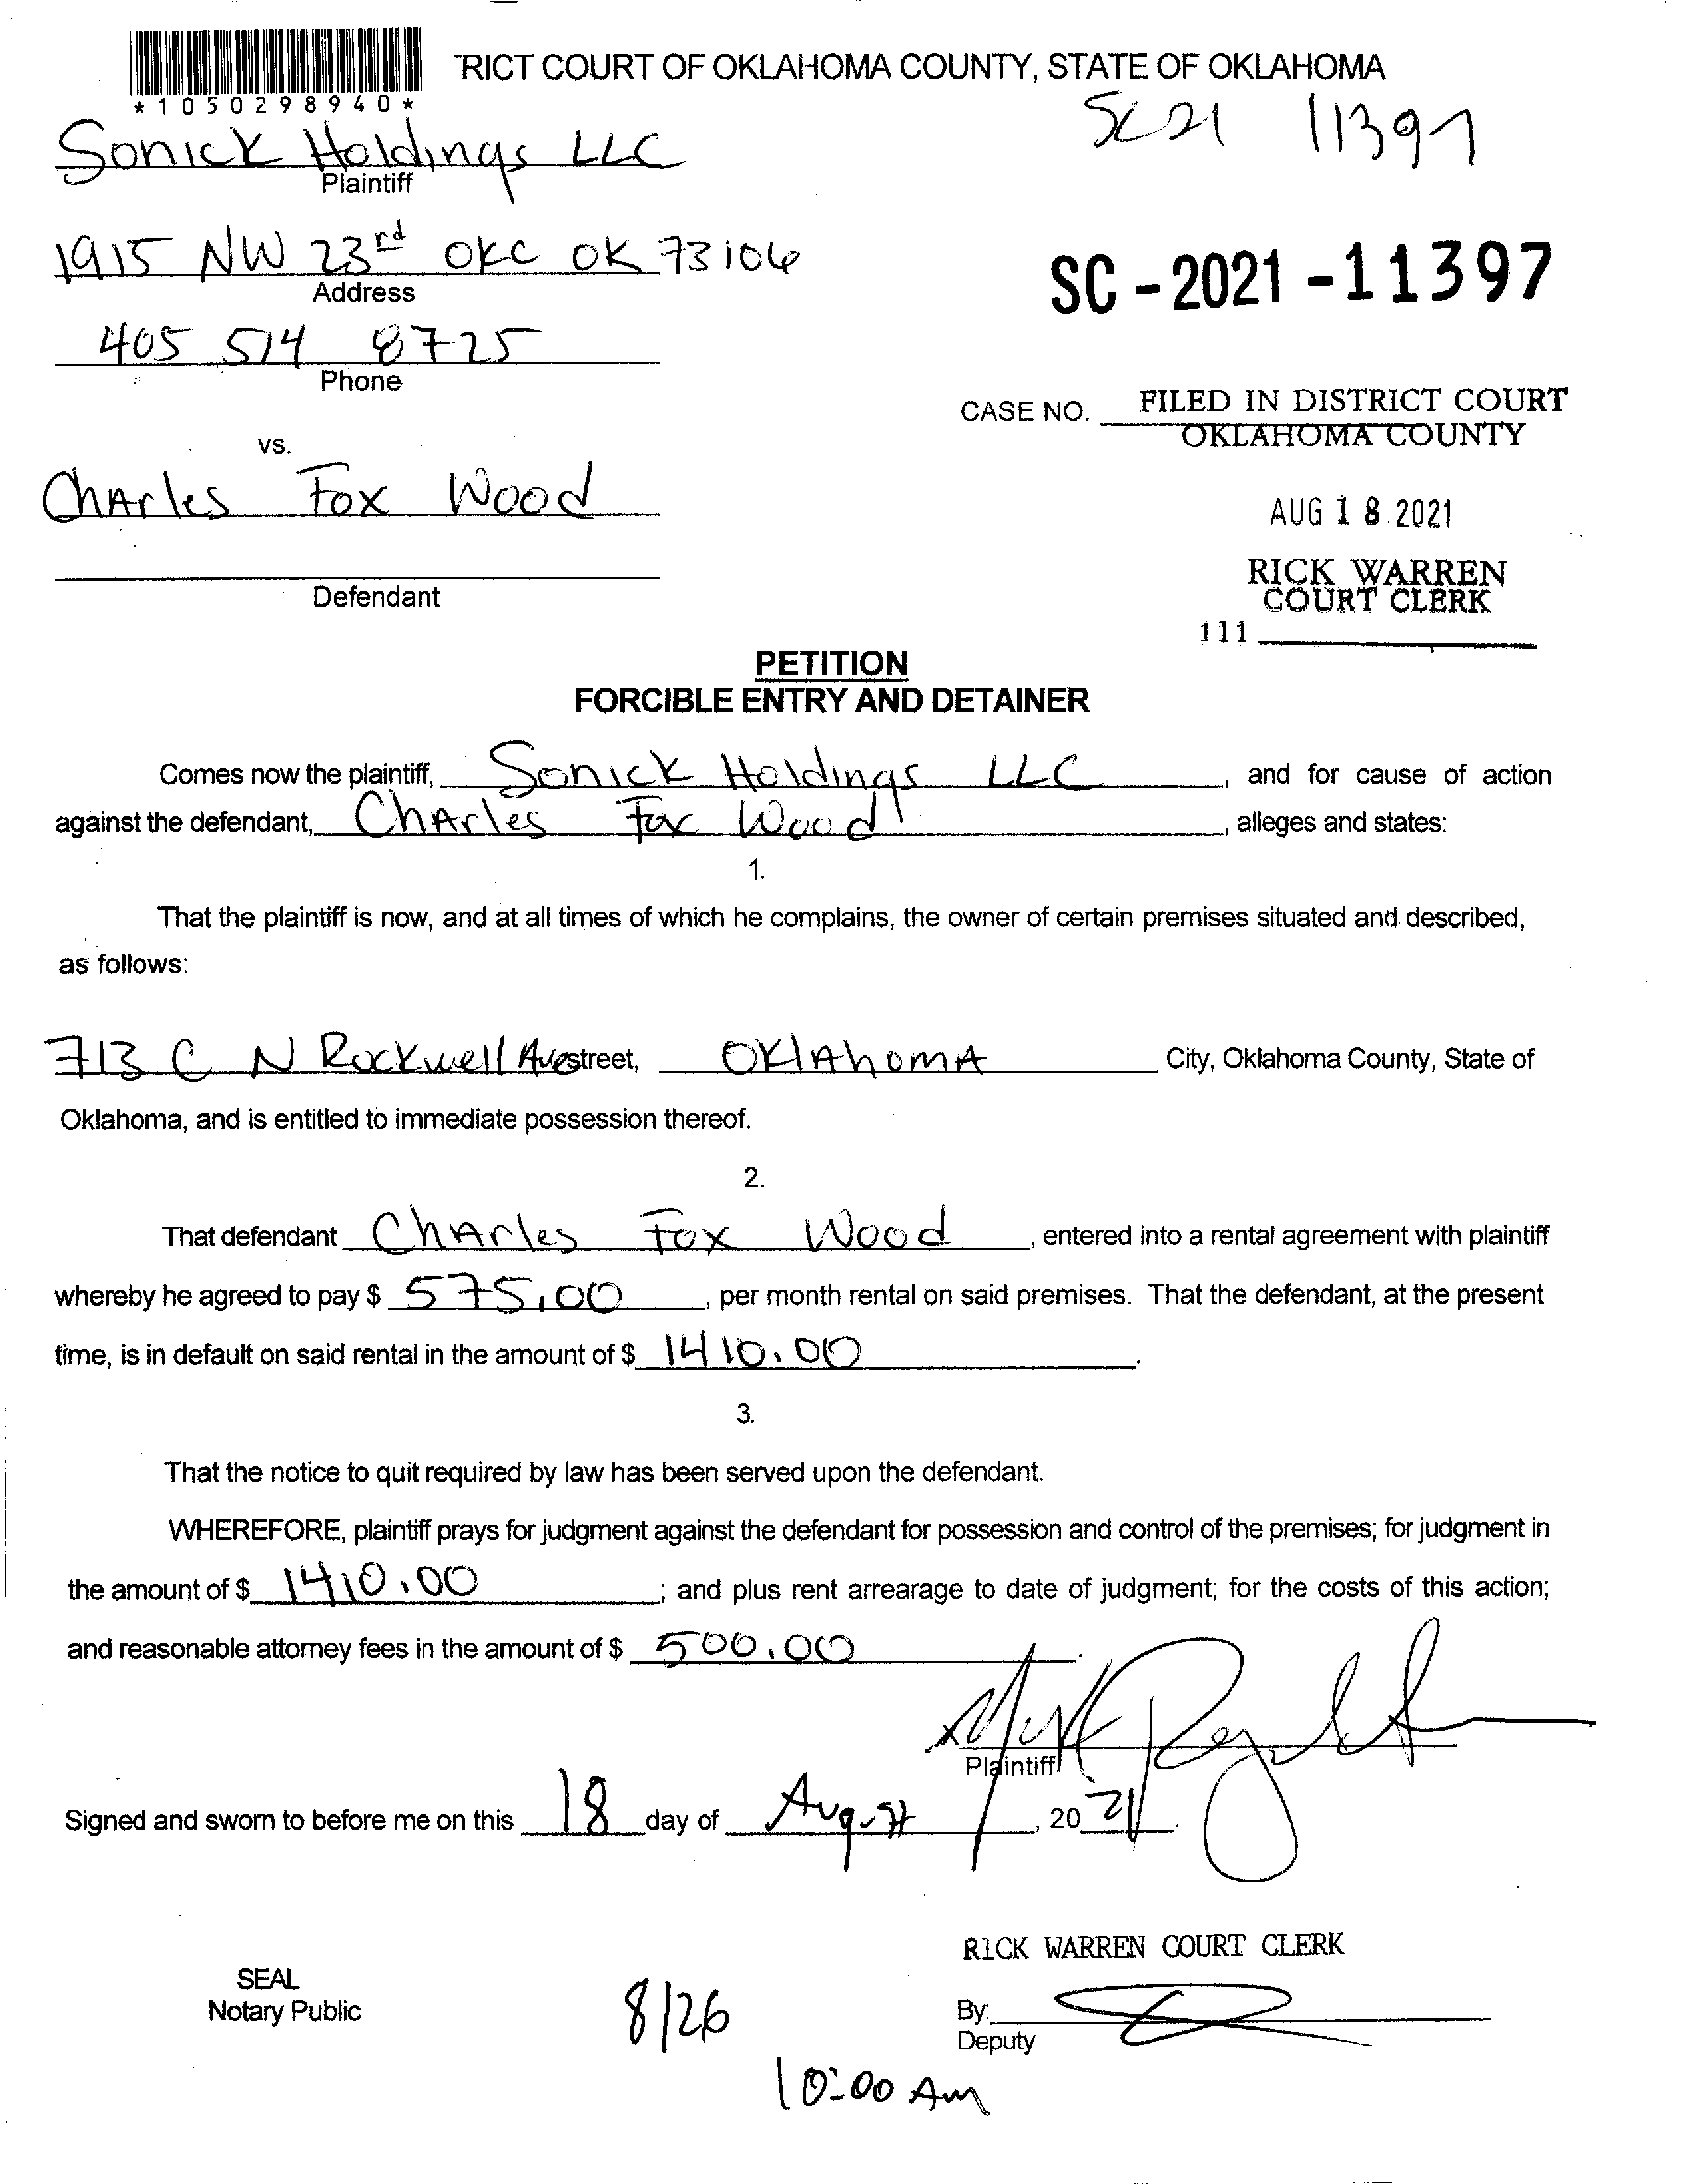 TRICT COURT OF OKLAHOMA COUNTY, STATE OF OKLAHOMA
*1050298940*
SC21 11397
Sonick Holdings LLC
Plaintiff
1915 NW 23rd OKC OK 73106
Address
SC-2021-11397
405 514 8725
Phone
CASE NO. FILED IN DISTRICT COURT
OKLAHOMA COUNTY
vs.
Charles Fox Wood
AUG 18 2021
Defendant
RICK WARREN
COURT CLERK
111
PETITION
FORCIBLE ENTRY AND DETAINER
Comes now the plaintiff, Sonick Holdings LLC, and for cause of action
against the defendant, Charles Fox Wood, alleges and states:
1.
That the plaintiff is now, and at all times of which he complains, the owner of certain premises situated and described,
as follows:
713 C N Rockwell Ave street, OKlAhomA City, Oklahoma County, State of
Oklahoma, and is entitled to immediate possession thereof.
2.
That defendant Charles Fox Wood, entered into a rental agreement with plaintiff
whereby he agreed to pay $ 575.00, per month rental on said premises. That the defendant, at the present
time, is in default on said rental in the amount of $ 1410.00.
3.
That the notice to quit required by law has been served upon the defendant.
WHEREFORE, plaintiff prays for judgment against the defendant for possession and control of the premises; for judgment in
the amount of $ 1410.00; and plus rent arrearage to date of judgment; for the costs of this action;
and reasonable attorney fees in the amount of $ 500.00.
Plaintiff
Signed and sworn to before me on this 18 day of August, 20 21.
RICK WARREN COURT CLERK
SEAL
Notary Public
8/26
By:
Deputy
10:00 Am